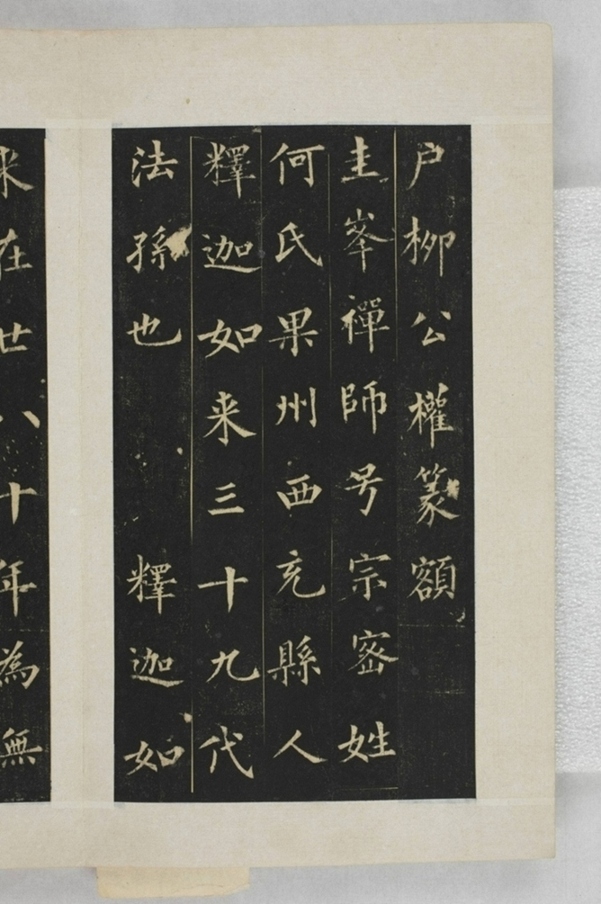 户柳公權篆額
圭峯禪師号宗密姓
何氏果州西充縣人
釋迦如来三十九代
法孫也 釋迦如
来在世八十年為無